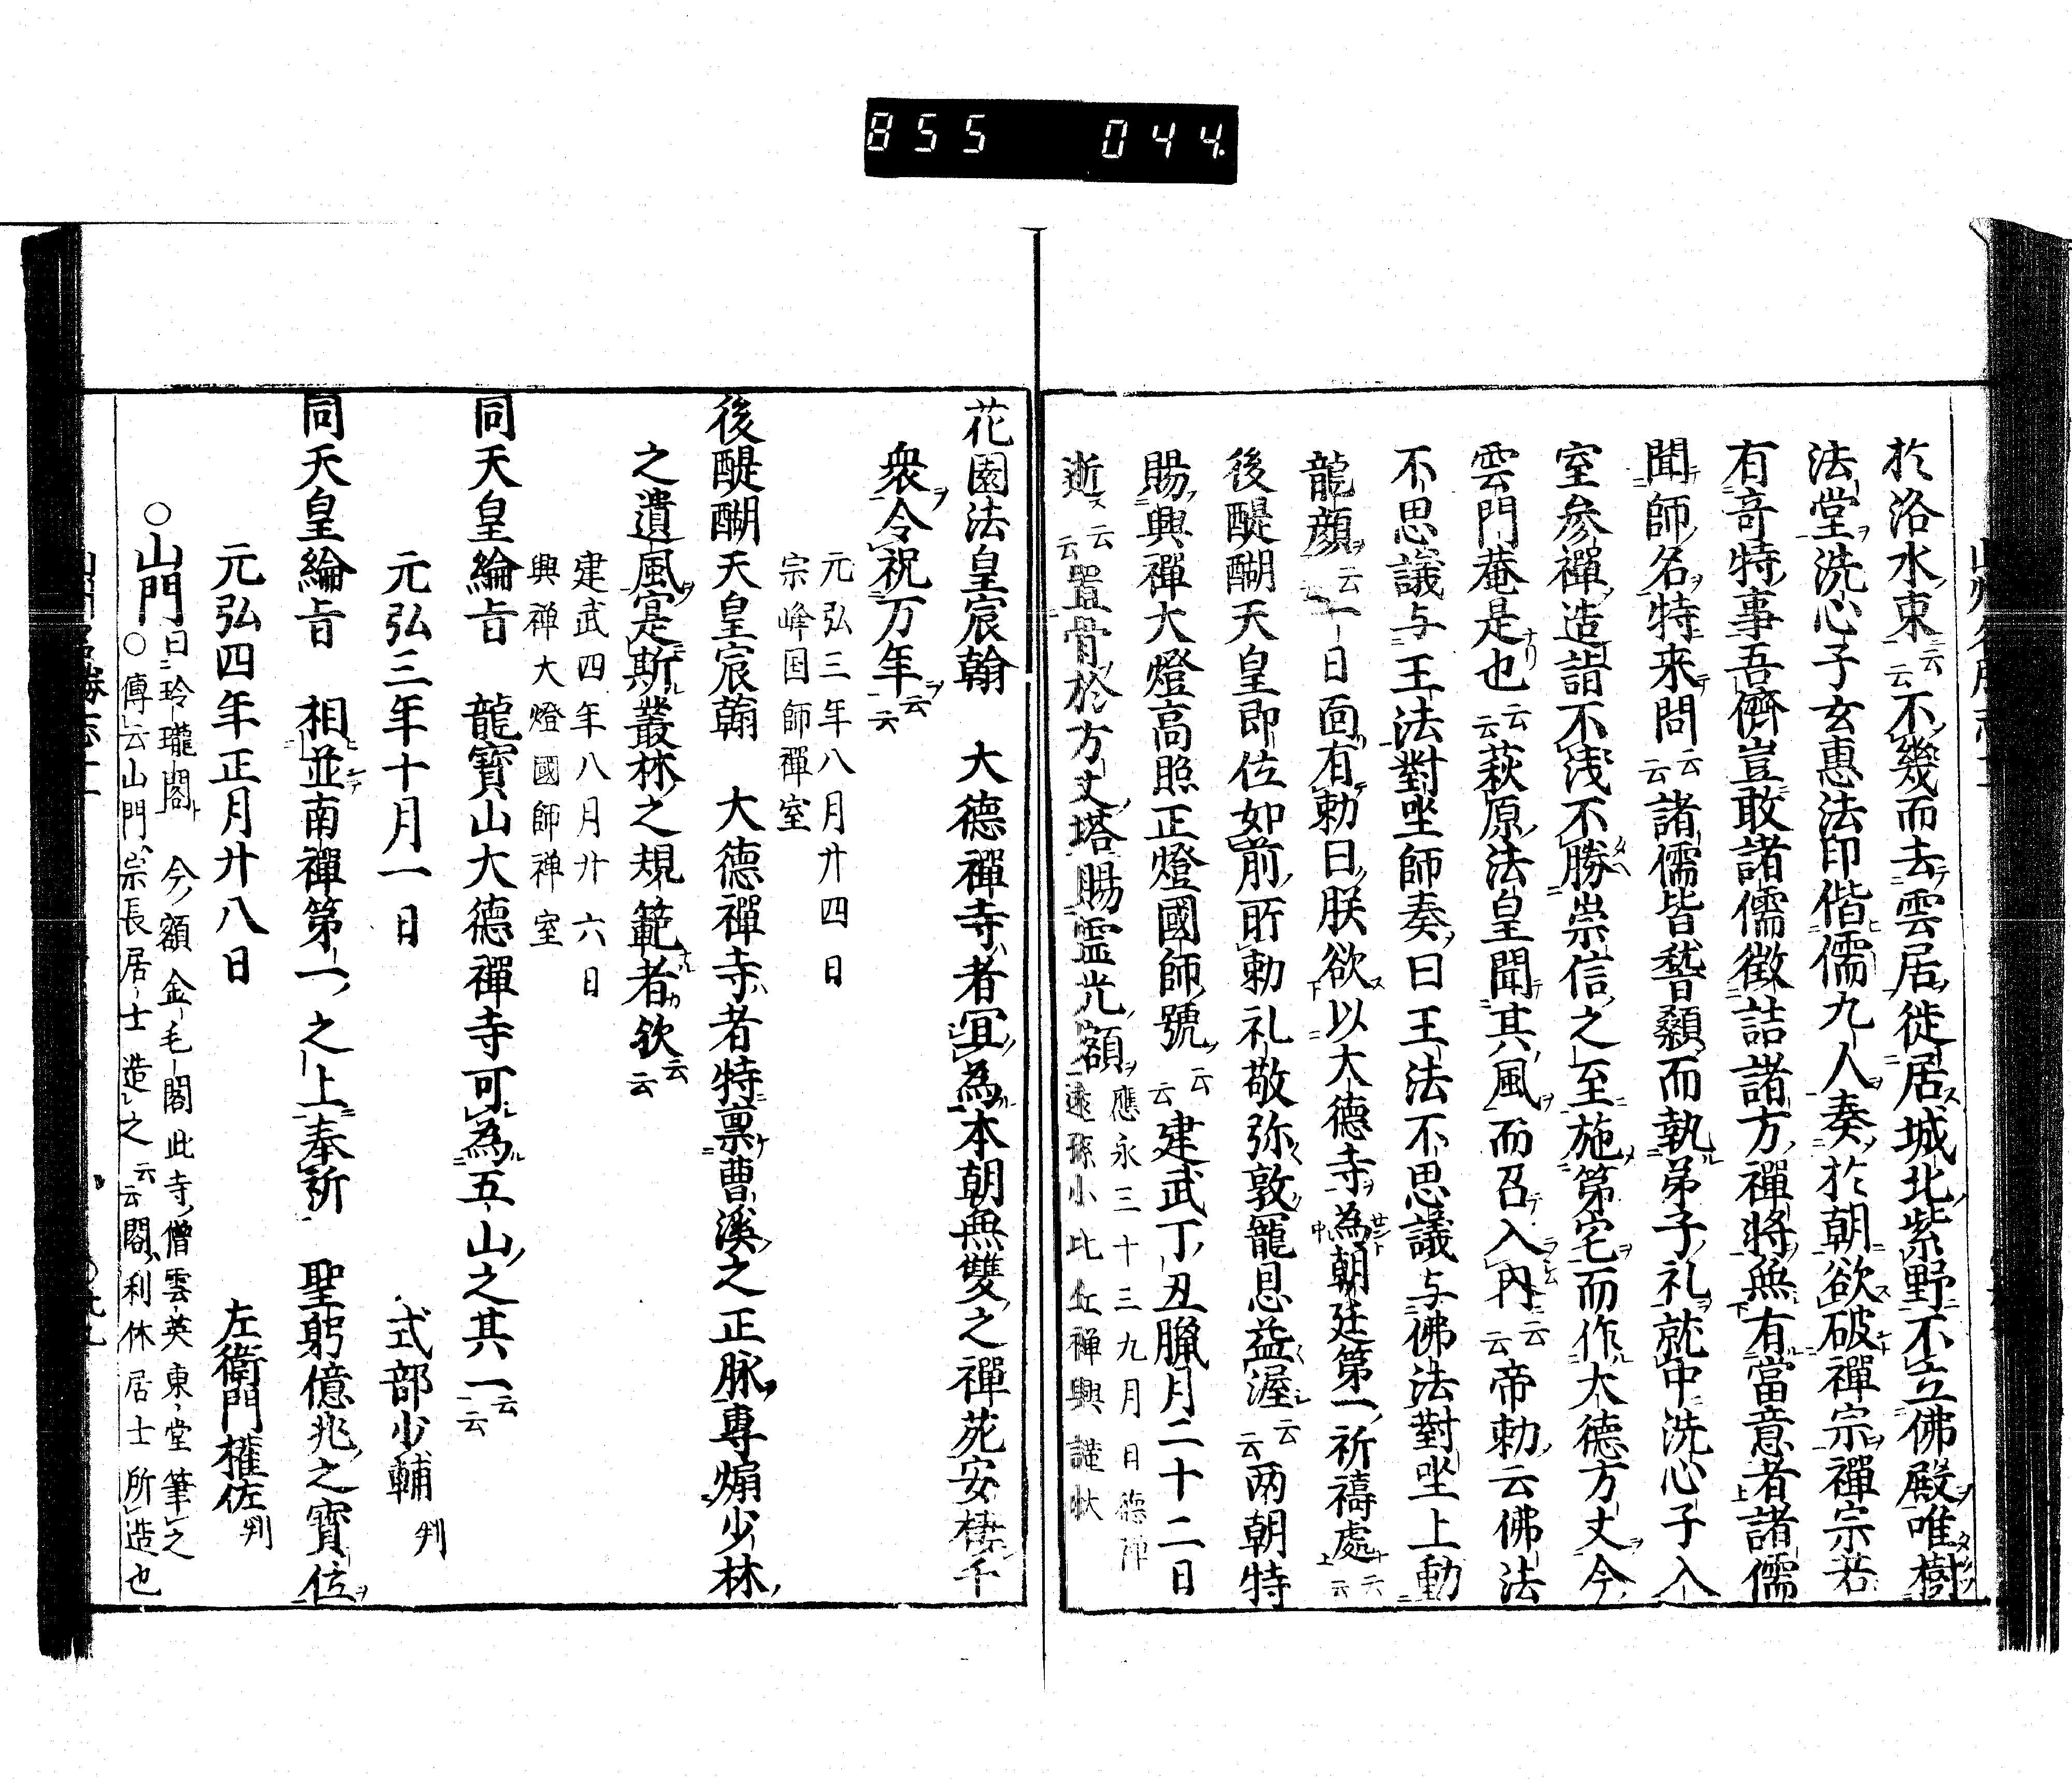 855 044
於洛水東云云不幾而去雲居徙居城北紫野不立佛殿唯樹
法堂洗心子玄惠法印偕儒九人奏於朝欲破禪宗禪宗若
有奇特事吾儕豈敢諸儒徴詰諸方禪將無有當意者諸儒
聞師名特来問云云諸儒皆稽顙而執弟子礼就中洗心子入
室參禪造詣不浅不勝崇信之至施第宅而作大德方丈今
雲門菴是也云云萩原法皇聞其風而召入内云云帝勅云佛法
不思議与王法對坐師奏曰王法不思議与佛法對坐上動
龍顔云云一日面有勅曰朕欲以大德寺為朝廷第一祈禱處云云
後醍醐天皇即位如前所勅礼敬弥敦寵恩益渥云云两朝特
賜興禪大燈高照正燈國師號云云建武丁丑臘月二十二日
逝云云置骨於方丈塔賜霊光額
應永三十三九月日德禅
遠孫小比丘禅興謹状
花園法皇宸翰　大德禪寺者宜為本朝無雙之禪苑安棲千
衆令祝万年云云
元弘三年八月廾四日
宗峰国師禪室
後醍醐天皇宸翰　大德禪寺者特禀曹溪之正脉專煽少林
之遺風寔斯叢林之規範者欤云云
建武四年八月廾六日
興禅大燈國師禅室
同天皇綸旨　龍寶山大德禪寺可為五山之其一云云
元弘三年十月一日　式部少輔判
同天皇綸旨　相並南禪第一之上奉祈　聖躬億兆之寶位
元弘四年正月廾八日　左衛門權佐判
○山門曰玲瓏閣　今額金毛閣此寺僧雲英東堂筆之
○傳云山門宗長居士造之云云閣利休居士所造也